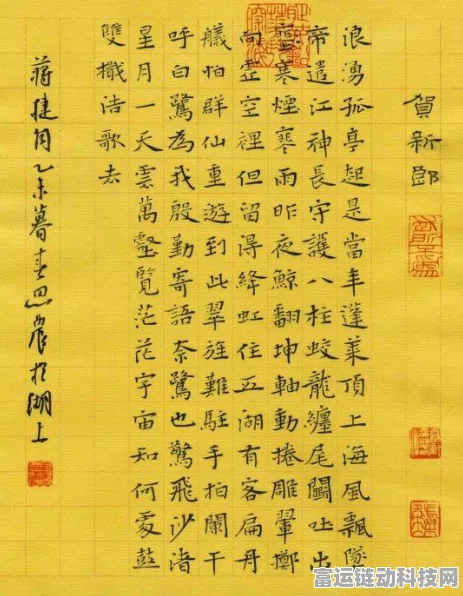 賀新郎
浪湧孤亭起是當年蓬萊頂上海風飄墜
帝遣江神長守護八柱蛟龍纏尾鬭吐出
寒煙寒雨昨夜鯨翻坤軸動捲雕翬擲
向虛空裡但留得絳虹住五湖有客扁舟
艤怕群仙重遊到此翠旌難駐手拍闌干
呼白鷺為我殷勤寄語奈鷺也驚飛沙渚
星月一天雲萬壑覽茫茫宇宙知何處鼓
雙檝浩歌去
蔣捷詞乙未暮春思農於湖上
富运链动科技网